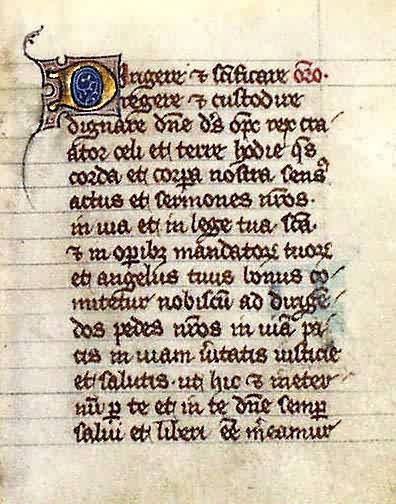 Dirigere ⁊ scificare oro.
regere ⁊ custodire
dignare dne ds opc rex cre
ator celi et terre hodie qs
corda et corpa nostra sens9
actus et sermones nros.
in uia et in lege tua. sca.
⁊ in opibꝫ mandatoꝝ tuoꝝ
et angelus tuus bonus co
mitetur nobiscu ad dirige
dos pedes nros in uia pa
cis in uiam uitatis iusticie
et salutis. ut hic ⁊ in eter
nu p te et in te dne semp
salui et liberi ee meamur